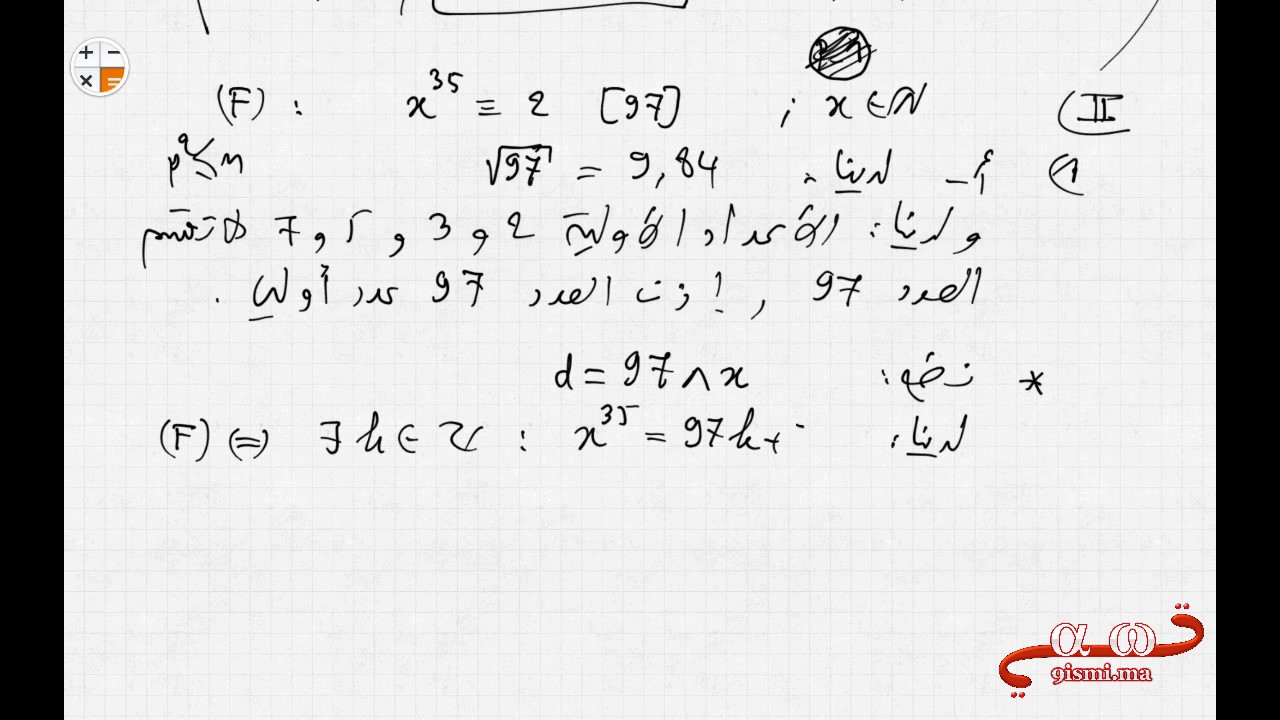 II) (F) : x^35 ≡ 2 [97] ; x ∈ ℕ
1) أ - لدينا : √97 = 9,84 p² ≤ n
و لدينا : الأعداد الأولية 2 و 3 و 5 و 7 لا تقسم
العدد 97 , إذن العدد 97 عدد أولي .
* نضع : d = 97 ∧ x
لدينا : (F) ⇔ ∃ k ∈ ℤ : x^35 = 97k +
α ω
gismi.ma